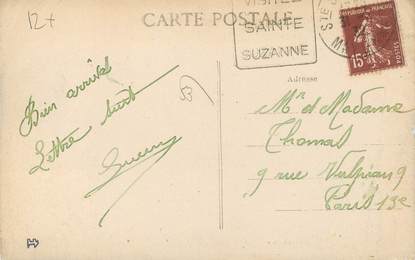 12+
CARTE POSTALE
VISITEZ
SAINTE
SUZANNE
REPUBLIQUE FRANÇAISE
15c
POSTES
Bien arrivés
Lettre suit
53
Adresse
Mr et Madame
Thomas
9 rue Vulpian 9
Paris 13e